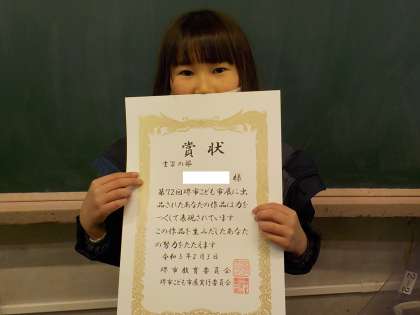 賞状
書写の部
様
第72回堺市こども市展に出
品されたあなたの作品は力を
つくして表現されています
この作品を生みだしたあなた
の努力をたたえます
令和5年2月3日
堺市教育委員会
堺市こども市展実行委員会